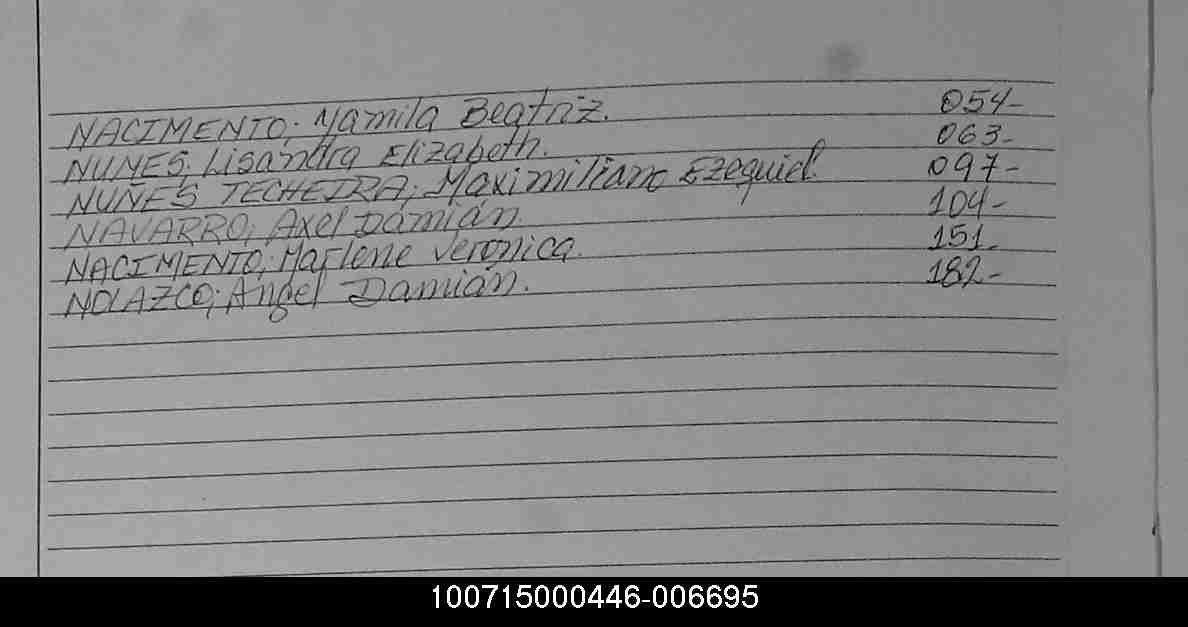 NACIMENTO; Yamila Beatriz. 054-
NUNES; Lisandra Elizabeth. 063-
NUÑES TECHEIRA; Maximiliano Ezequiel. 097-
NAVARRO; Axel Damián. 104-
NACIMENTO; Marlene Veronica. 151-
NOLAZCO; Angel Damián. 182-
100715000446-006695